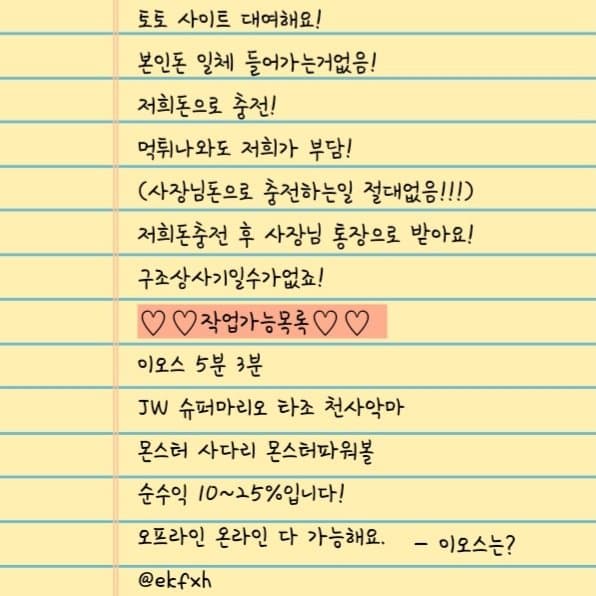 토토 사이트 대여해요!
본인돈 일체 들어가는거없음!
저희돈으로 충전!
먹튀나와도 저희가 부담!
(사장님돈으로 충전하는일 절대없음!!!)
저희돈충전 후 사장님 통장으로 받아요!
구조상사기일수가없죠!
♡♡작업가능목록♡♡
이오스 5분 3분
JW 슈퍼마리오 타조 천사악마
몬스터 사다리 몬스터파워볼
순수익 10~25%입니다!
오프라인 온라인 다 가능해요. - 이오스는?
@ekfxh